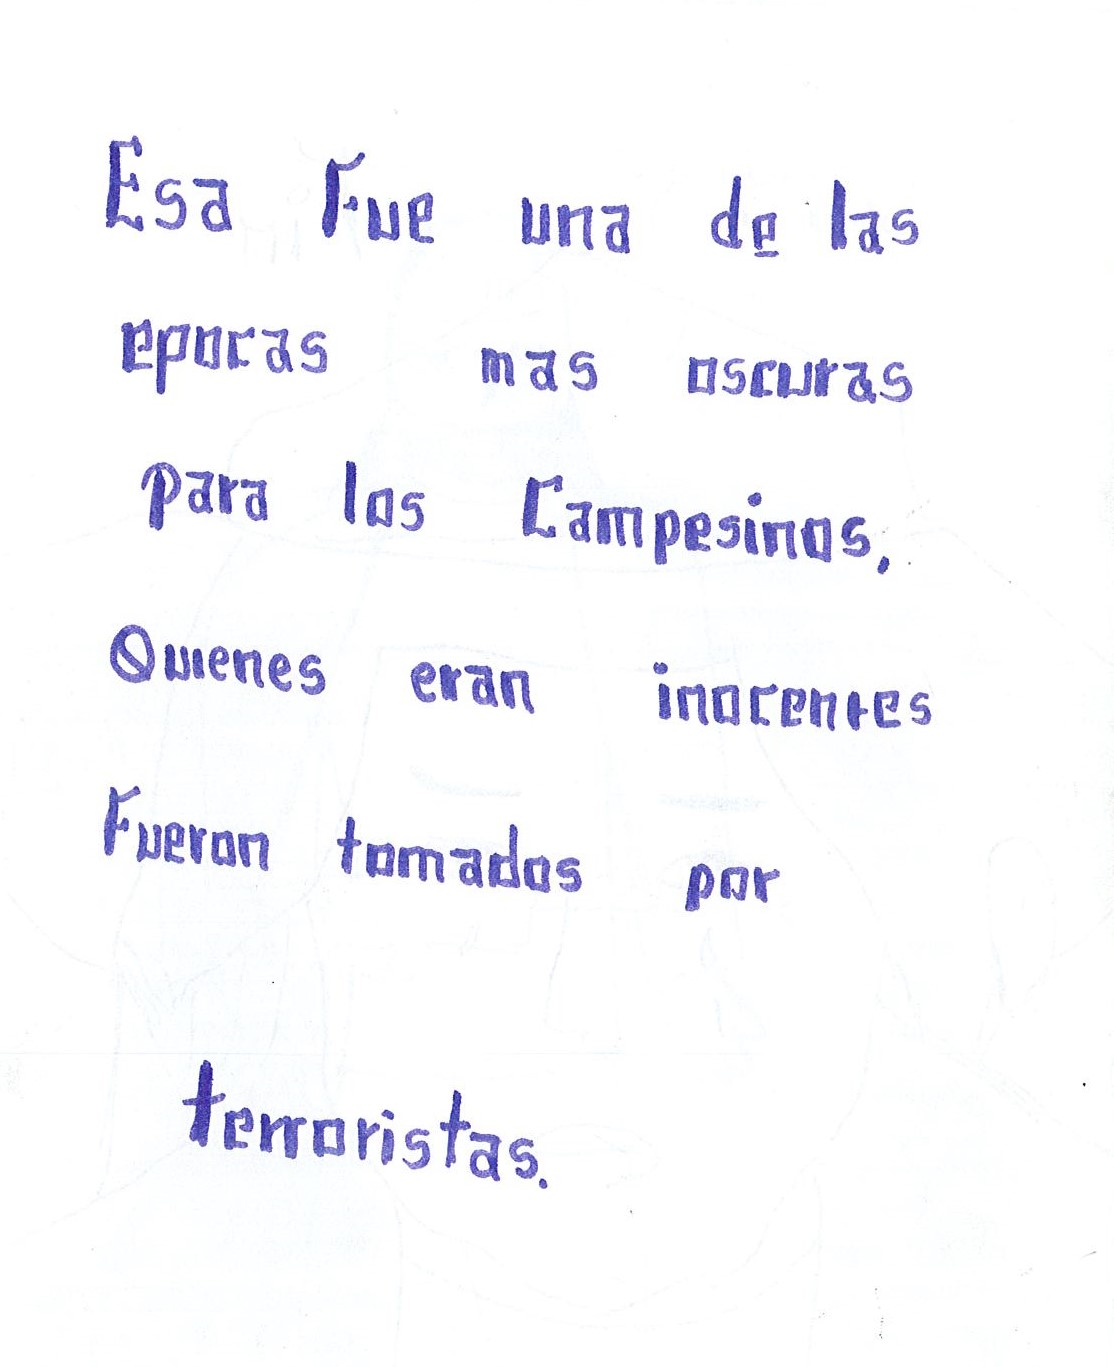 Esa Fue una de las
epocas mas oscuras
para los Campesinos,
Quienes eran inocentes
Fueron tomados por
terroristas.